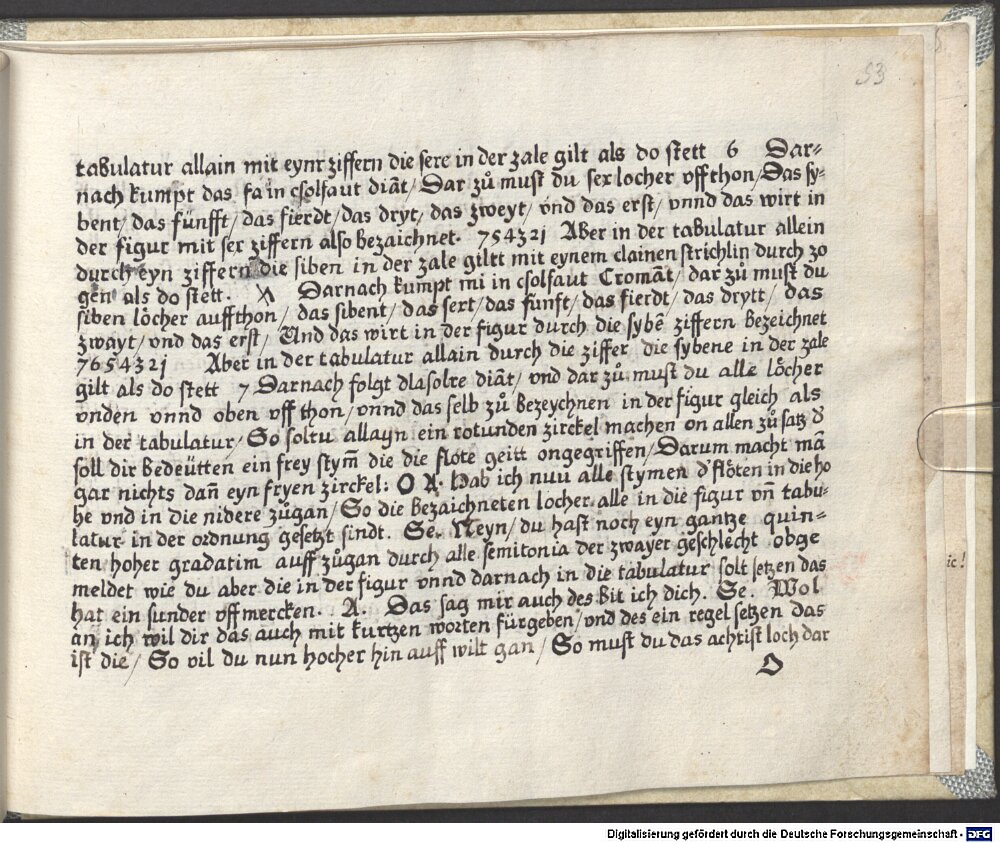 53
tabulatur allain mit eynr ziffern die sere in der zale gilt als do stett 6 Dar=
nach kumpt das fa in csolfaut diāt/ Dar zů must du sex locher vff thon/ Das sy=
bent/ das fünfft/ das fierdt/ das dryt/ das zweyt/ vnd das erst/ vnnd das wirt in
der figur mit sex ziffern also bezaichnet. 754321 Aber in der tabulatur allein
durch eyn ziffern die siben in der zale giltt mit eynem clainen strichlin durch zo
gen als do stett. Darnach kumpt mi in csolfaut Cromāt/ dar zů must du
siben löcher auffthon/ das sibent/ das sext/ das fünft/ das fierdt/ das drytt/ das
zwayt/ vnd das erst/ Und das wirt in der figur durch die sybē ziffern bezeichnet
7654321 Aber in der tabulatur allain durch die ziffer die sybene in der zale
gilt als do stett 7 Darnach folgt dlasolre diāt/ vnd dar zů must du alle löcher
vnden vnnd oben vff thon/ vnnd das selb zů bezeychnen in der figur gleich als
in der tabulatur/ So soltu allayn ein rotunden zirckel machen on allen zůsatz d
soll dir bedeütten ein frey stym̄ die die flöte geitt ongegriffen/ Darum macht mā
gar nichts dañ eyn fryen zirckel: O A. Hab ich nuu alle stymen d' flöten in die ho
he vnd in die nidere zůgan/ So die bezaichneten locher alle in die figur vñ tabu=
latur in der ordnung gesetzt sindt. Se. Neyn/ du hast noch eyn gantze quin=
ten hoher gradatim auff zůgan durch alle semitonia der zwayer geschlecht obge
meldet wie du aber die in der figur vnnd darnach in die tabulatur solt setzen das
hat ein sunder vffmercken. A. Das sag mir auch des bit ich dich. Se. Wol
an ich wil dir das auch mit kurtzen worten fürgeben/ vnd des ein regel setzen das
ist die/ So vil du nun hocher hin auff wilt gan/ So must du das achtist loch dar
D
ic!
Digitalisierung gefördert durch die Deutsche Forschungsgemeinschaft - DFG